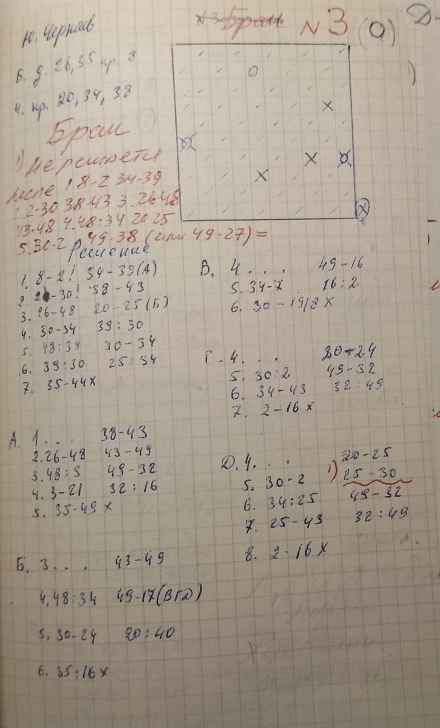 №3 Брак №3 (О)
Ю. Черняев
Б. д. 26, 35 пр. 8
Ч. пр. 20, 34, 38
Брак
1) Не решается
после 1. 8-2 34-39
2. 2-30 38-43 3. 26-48
43-48 4. 48:34 20-25
5. 30-2 49-38 (или 49-27) =
Решение
1. 8-2! 34-39 (А)
2. 2-30! 38-43
3. 26-48 20-25 (Б)
4. 30-34 39:30
5. 48:34 30-34
6. 39:30 25:34
7. 35-44х
А. 1... 38-43
2. 26-48 43-49
3. 48:3 49-32
4. 3-21 32:16
5. 35-49х
Б. 3... 43-49
4. 48:34 49-17 (ВГД)
5. 30-24 20:40
6. 35:16х
В. 4.... 49-16
5. 34-7 16:2
6. 30-19/8х
Г. 4.... 20-24
5. 30:2 49-32
6. 34-43 32:49
7. 2-16х
Д. 4... 20-25
5. 30-2 1) 25-30
6. 34:25 49-32
7. 25-43 32:49
8. 2-16х